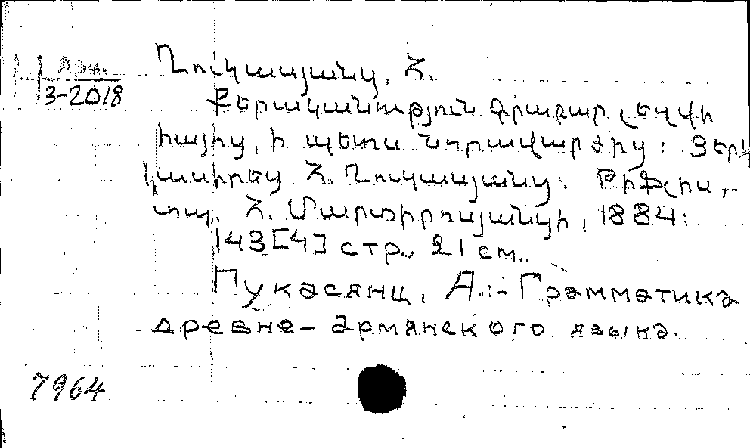 Ղուկասյանց, Հ.
3-2018
Քերականություն գրաբար լեզվի
հայից, ի պետս նորավարժից: Յեր
կասիրեց Հ. Ղուկասյանց: Թիֆլիս,
տպ. Հ. Մարտիրոսյանցի, 1884:
143[4] стр., 21 см..
Гукасянц, А.:- Грамматика
древне-армянского языка.
7964